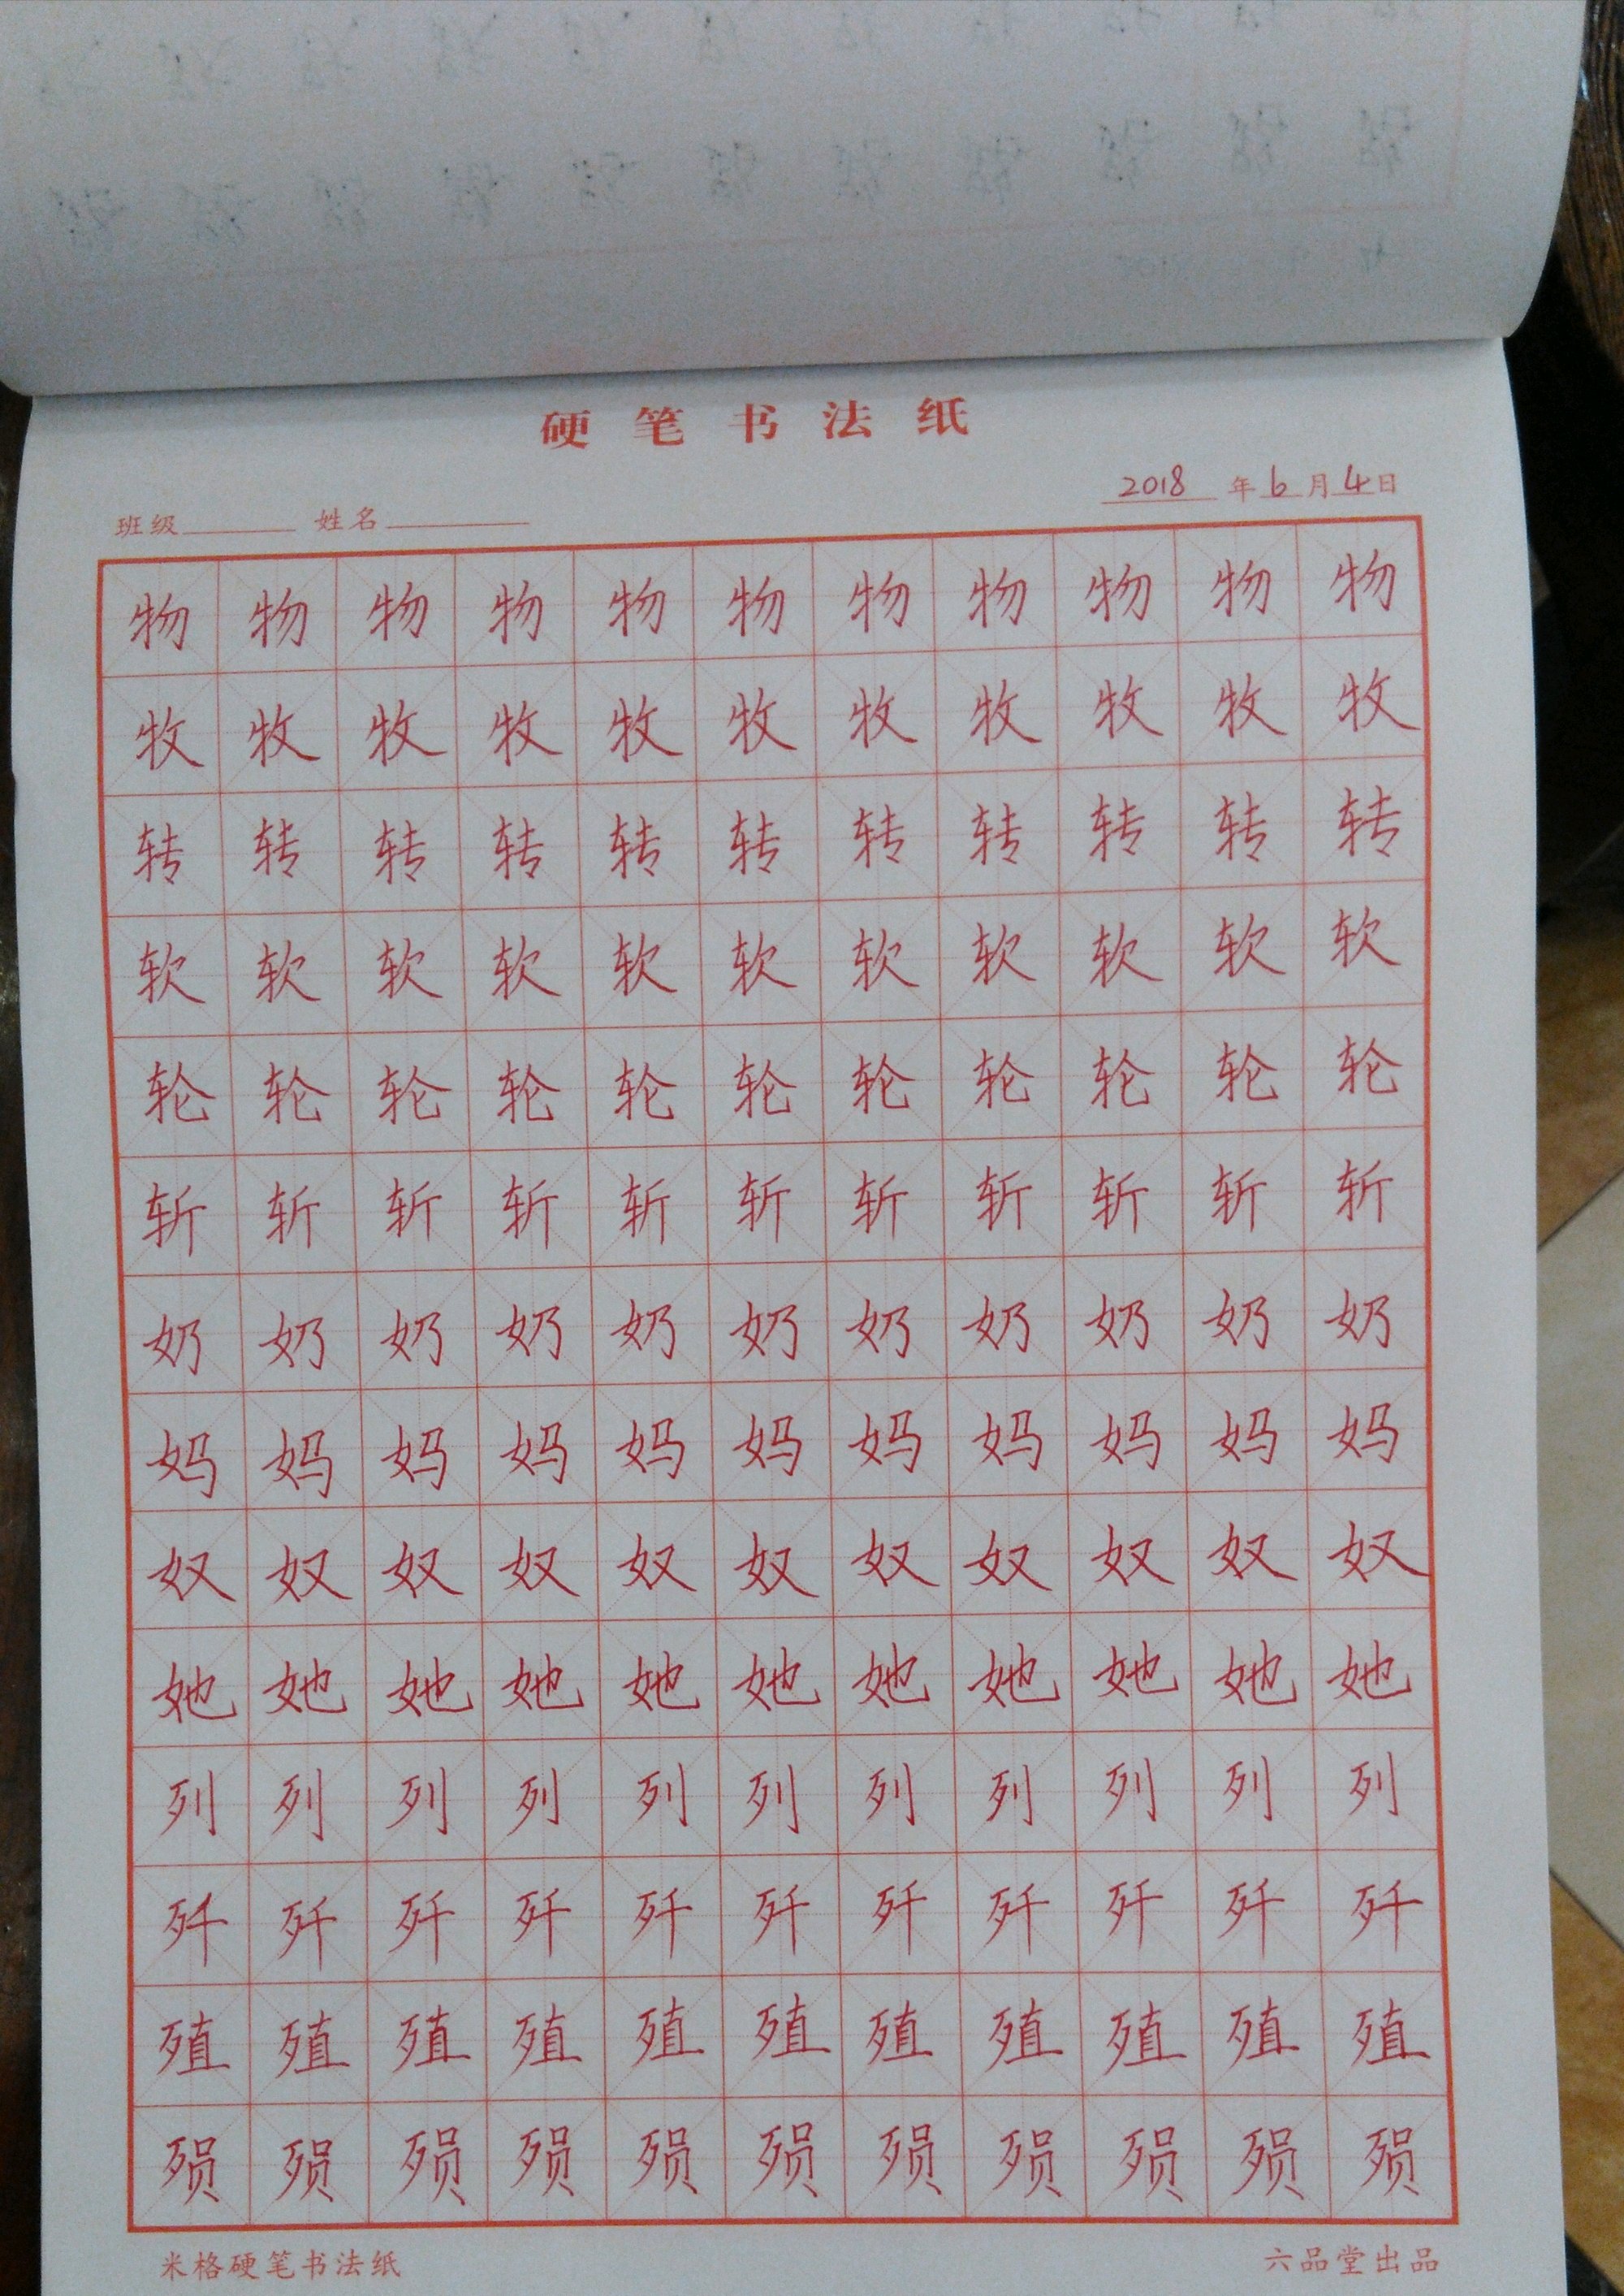 硬笔书法纸
2018年6月4日
班级 姓名
物物物物物物物物物物物
牧牧牧牧牧牧牧牧牧牧牧
转转转转转转转转转转转
软软软软软软软软软软软
轮轮轮轮轮轮轮轮轮轮轮
斩斩斩斩斩斩斩斩斩斩斩
奶奶奶奶奶奶奶奶奶奶奶
妈妈妈妈妈妈妈妈妈妈妈
奴奴奴奴奴奴奴奴奴奴奴
她她她她她她她她她她她
列列列列列列列列列列列
歼歼歼歼歼歼歼歼歼歼歼
殖殖殖殖殖殖殖殖殖殖殖
殒殒殒殒殒殒殒殒殒殒殒
米格硬笔书法纸 六品堂出品